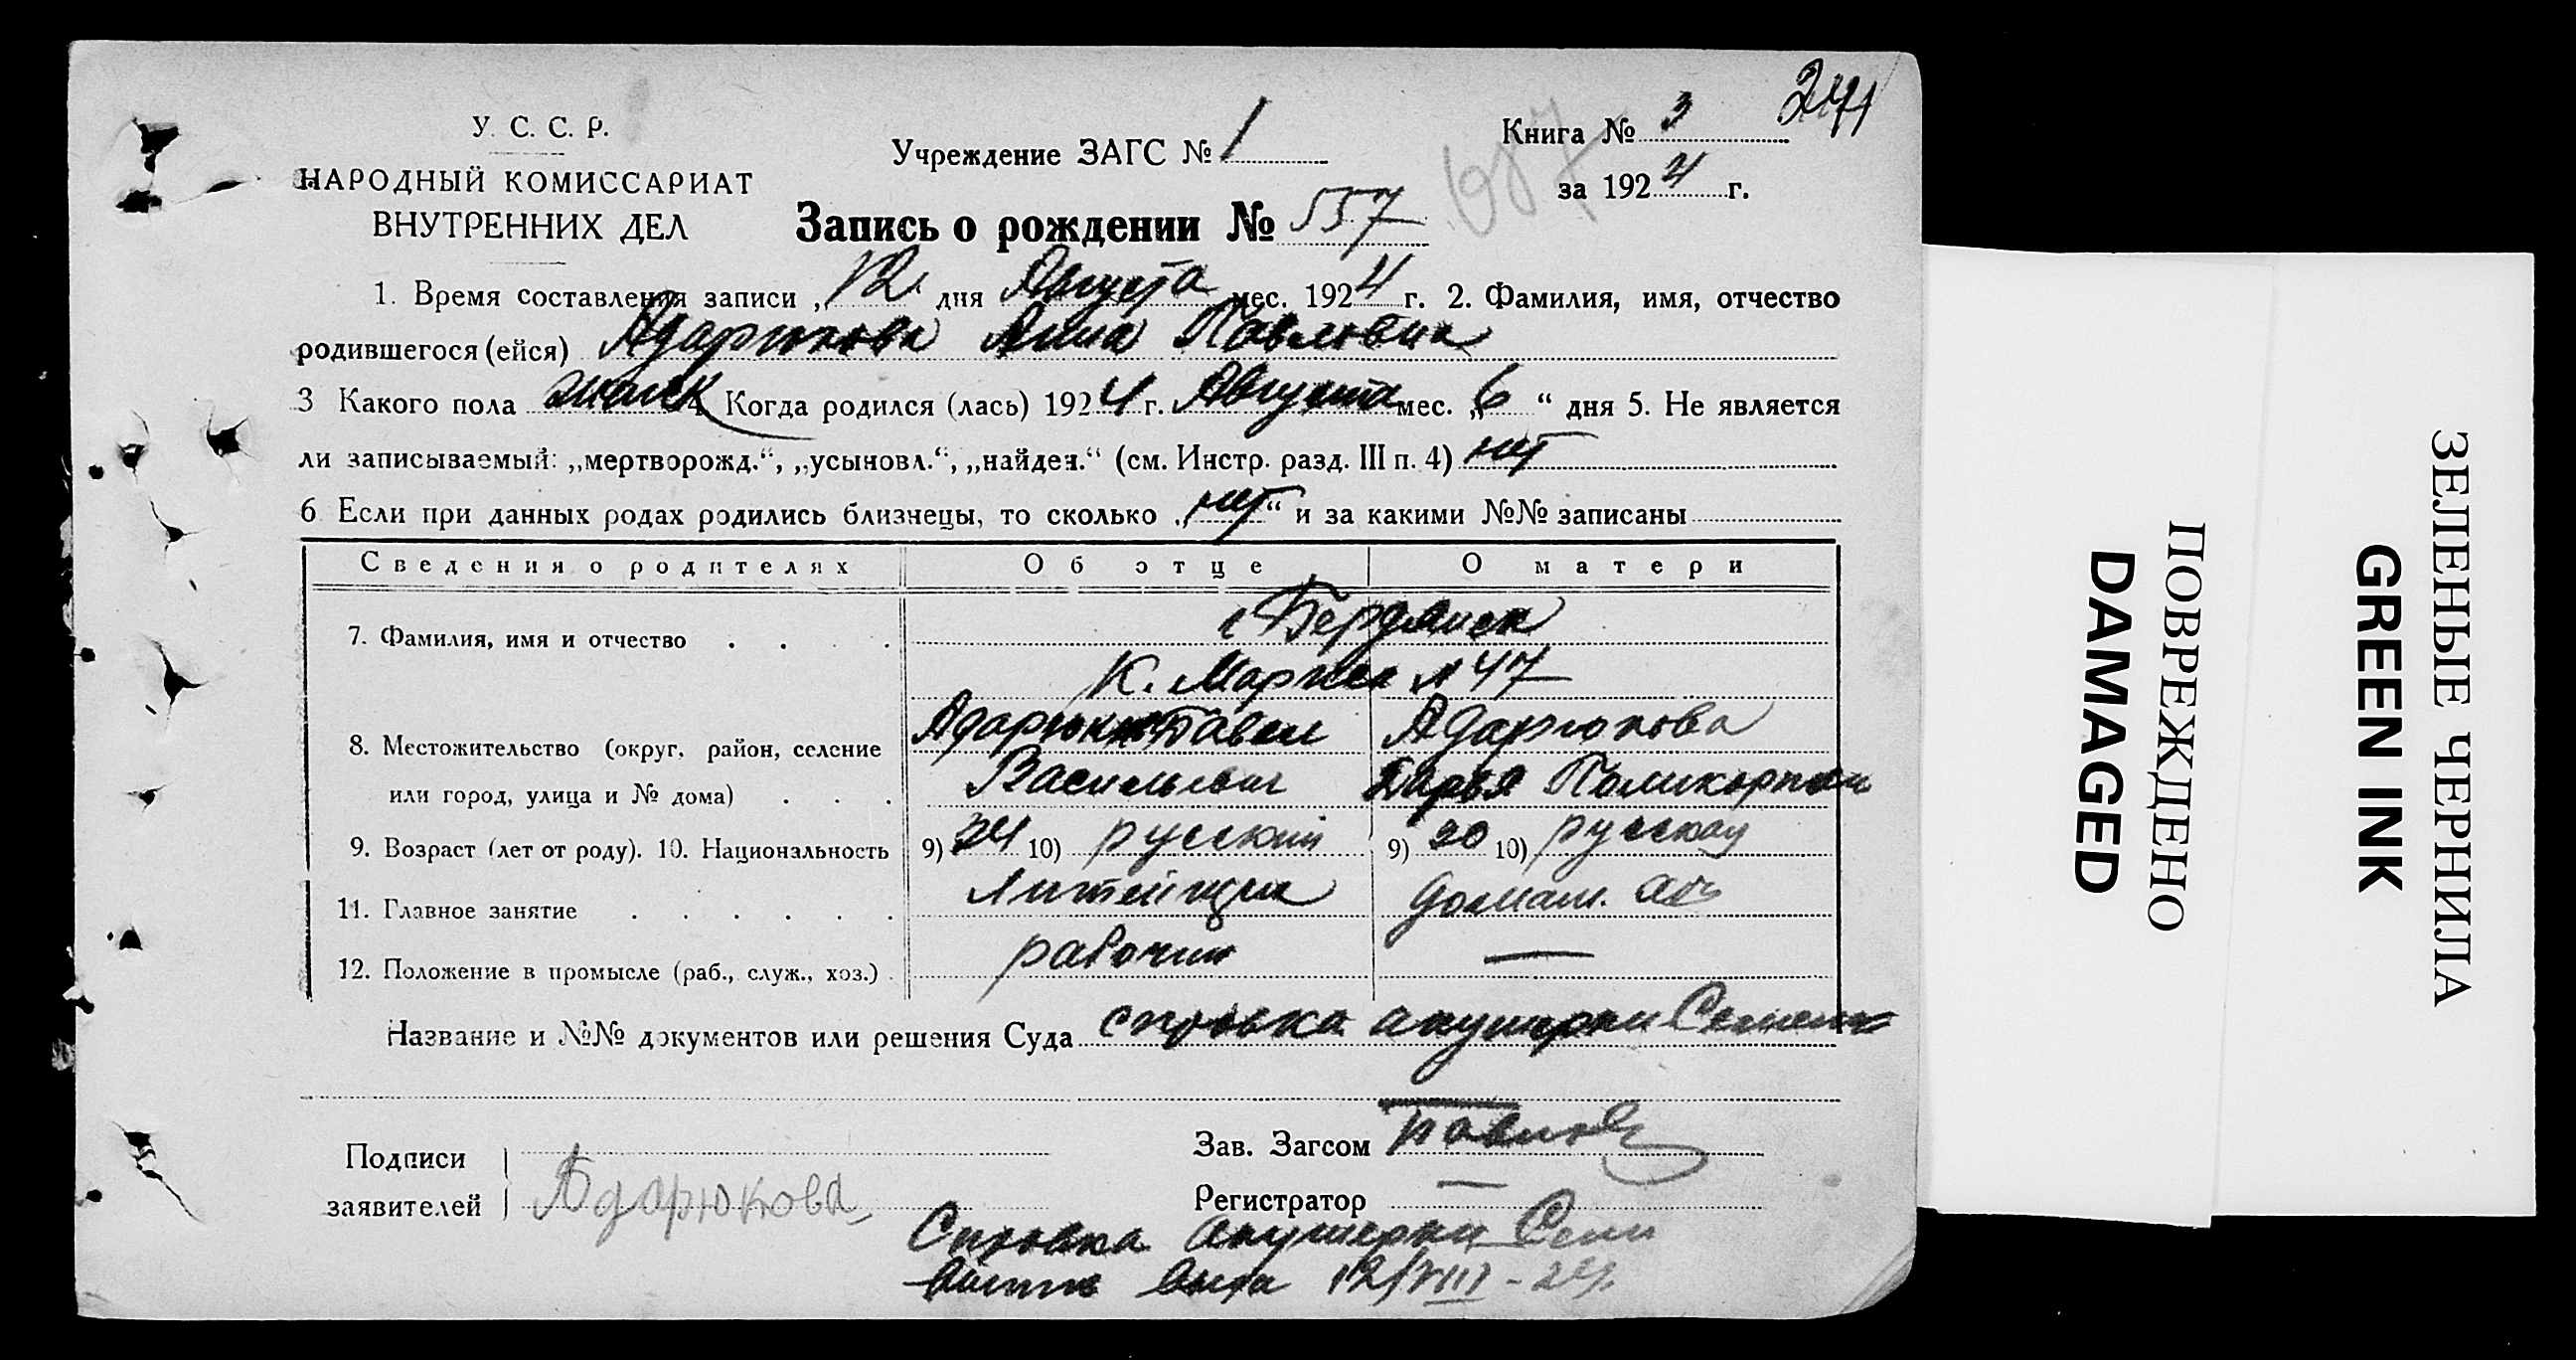 241
У. С. С. Р.
НАРОДНЫЙ КОМИССАРИАТ
ВНУТРЕННИХ ДЕЛ
Учреждение ЗАГС № 1
Книга № 3
за 1924 г.
Запись о рождении № 557
1. Время составления записи „12“ дня Августа мес. 1924 г. 2. Фамилия, имя, отчество
родившегося (ейся) Адарюкова Анна Павловна
3 Какого пола женск 4. Когда родился (лась) 1924 г. Августа мес. „6“ дня 5. Не является
ли записываемый: „мертворожд.“, „усыновл.“, „найден.“ (см. Инстр. разд. III п. 4) нет
6 Если при данных родах родились близнецы, то сколько „нет“ и за какими №№ записаны
Сведения о родителях Об отце О матери
7. Фамилия, имя и отчество . . . .
г Бердянск
К. Маркса № 47
8. Местожительство (округ, район, селение
или город, улица и № дома) . . .
Адарюков Павел
Васильевич
Адарюкова
Дарья Поликарповн
9. Возраст (лет от роду). 10. Национальность 9) 24 10) русский 9) 20 10) русская
11. Главное занятие . . . . . . Литейщик домаш. хоз
12. Положение в промысле (раб., служ., хоз.) . рабочий —
Название и №№ документов или решения Суда справка акушерки
Подписи
заявителей
Адарюкова
Зав. Загсом
Регистратор
Справка Акушерки
12/VIII - 24.
ПОВРЕЖДЕНО
DAMAGED
ЗЕЛЕНЫЕ ЧЕРНИЛА
GREEN INK